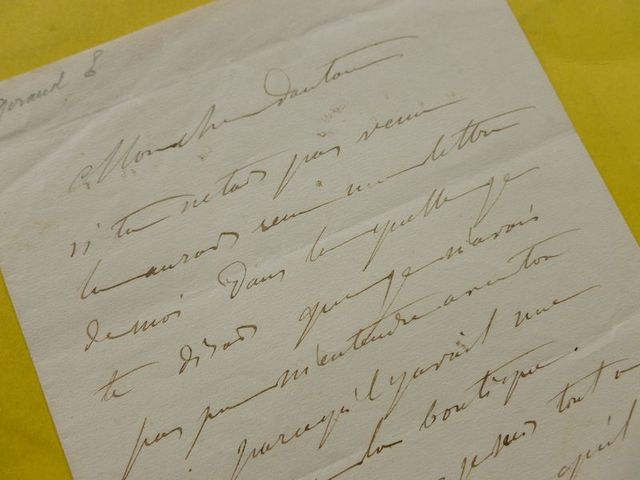 Geraud 8
Mon cher Dantan
si tu n'etais pas venu
tu aurais reçu une lettre
de moi dans laquelle je
te disais que je n'avais
pas pu m'entendre avec ton
parcequ'il y avait une
la boutique.
je suis tout a
qu'il